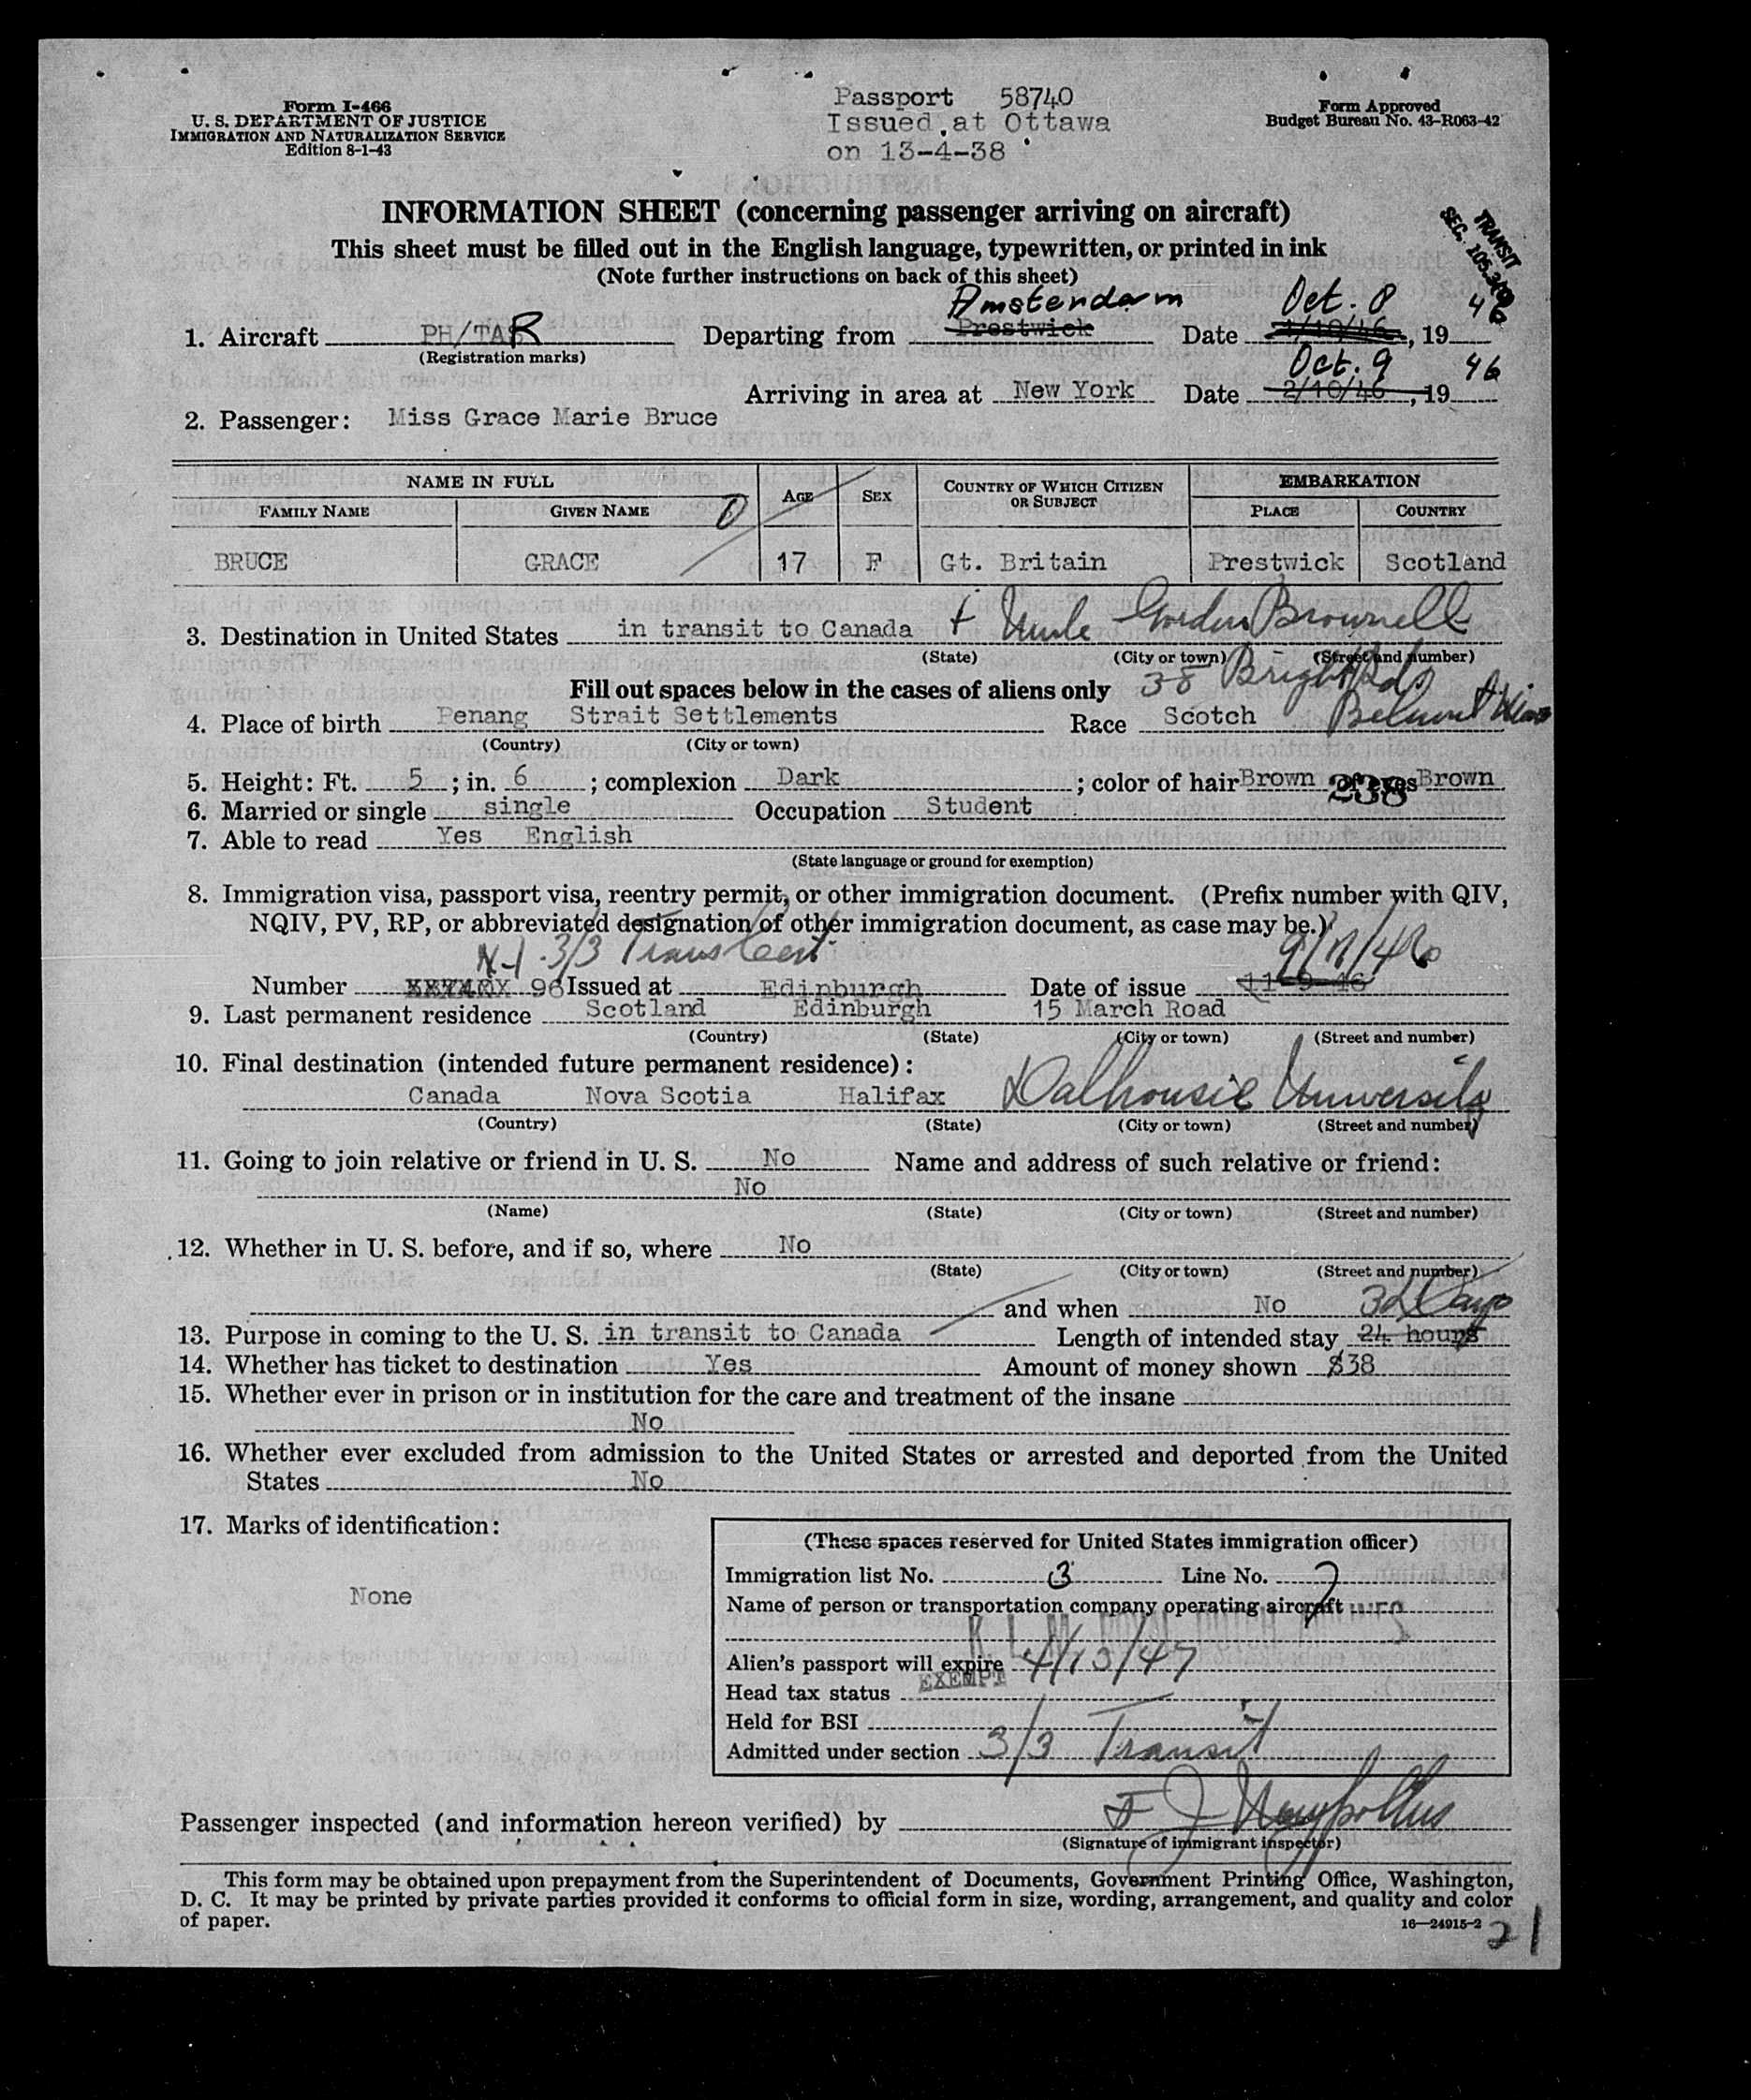 Form I-466
U. S. DEPARTMENT OF JUSTICE
IMMIGRATION AND NATURALIZATION SERVICE
Edition 8-1-43
Passport 58740
Issued at Ottawa
on 13-4-38
Form Approved
Budget Bureau No. 43-R063-42
INFORMATION SHEET (concerning passenger arriving on aircraft)
This sheet must be filled out in the English language, typewritten, or printed in ink
(Note further instructions on back of this sheet)
TRANSIT
SEC. 105.3
Amsterdam Oct. 8 46
1. Aircraft PH/TAR Departing from Prestwick Date 1/10/46, 19
(Registration marks)
Oct. 9 46
Arriving in area at New York Date 2/10/46, 19
2. Passenger: Miss Grace Marie Bruce
NAME IN FULL AGE SEX COUNTRY OF WHICH CITIZEN OR SUBJECT EMBARKATION
FAMILY NAME GIVEN NAME PLACE COUNTRY
BRUCE GRACE 17 F Gt. Britain Prestwick Scotland
3. Destination in United States in transit to Canada Uncle Gordon Brownell
(State) (City or town) (Street and number)
38 Bright Rd
Fill out spaces below in the cases of aliens only
4. Place of birth Penang Strait Settlements Race Scotch Belmont
(Country) (City or town)
5. Height: Ft. 5; in. 6; complexion Dark; color of hair Brown of eyes Brown
238
6. Married or single single Occupation Student
7. Able to read Yes English
(State language or ground for exemption)
8. Immigration visa, passport visa, reentry permit, or other immigration document. (Prefix number with QIV,
NQIV, PV, RP, or abbreviated designation of other immigration document, as case may be.)
3/3 Trans Cert
Number 96 Issued at Edinburgh Date of issue 11-9-46
9. Last permanent residence Scotland Edinburgh 15 March Road
(Country) (State) (City or town) (Street and number)
10. Final destination (intended future permanent residence):
Canada Nova Scotia Halifax Dalhousie University
(Country) (State) (City or town) (Street and number)
11. Going to join relative or friend in U. S. No Name and address of such relative or friend:
No
(Name) (State) (City or town) (Street and number)
12. Whether in U. S. before, and if so, where No
(State) (City or town) (Street and number)
and when No
3 Days
13. Purpose in coming to the U. S. in transit to Canada Length of intended stay 24 hours
14. Whether has ticket to destination Yes Amount of money shown $38
15. Whether ever in prison or in institution for the care and treatment of the insane
No
16. Whether ever excluded from admission to the United States or arrested and deported from the United
States No
17. Marks of identification:
None
(These spaces reserved for United States immigration officer)
Immigration list No. 3 Line No. 7
Name of person or transportation company operating aircraft
K L M ROYAL DUTCH AIRLINES
Alien's passport will expire 4/13/47
Head tax status EXEMPT
Held for BSI
Admitted under section 3/3 Transit
Passenger inspected (and information hereon verified) by
(Signature of immigrant inspector)
This form may be obtained upon prepayment from the Superintendent of Documents, Government Printing Office, Washington,
D. C. It may be printed by private parties provided it conforms to official form in size, wording, arrangement, and quality and color
of paper.
16—24915-2
21